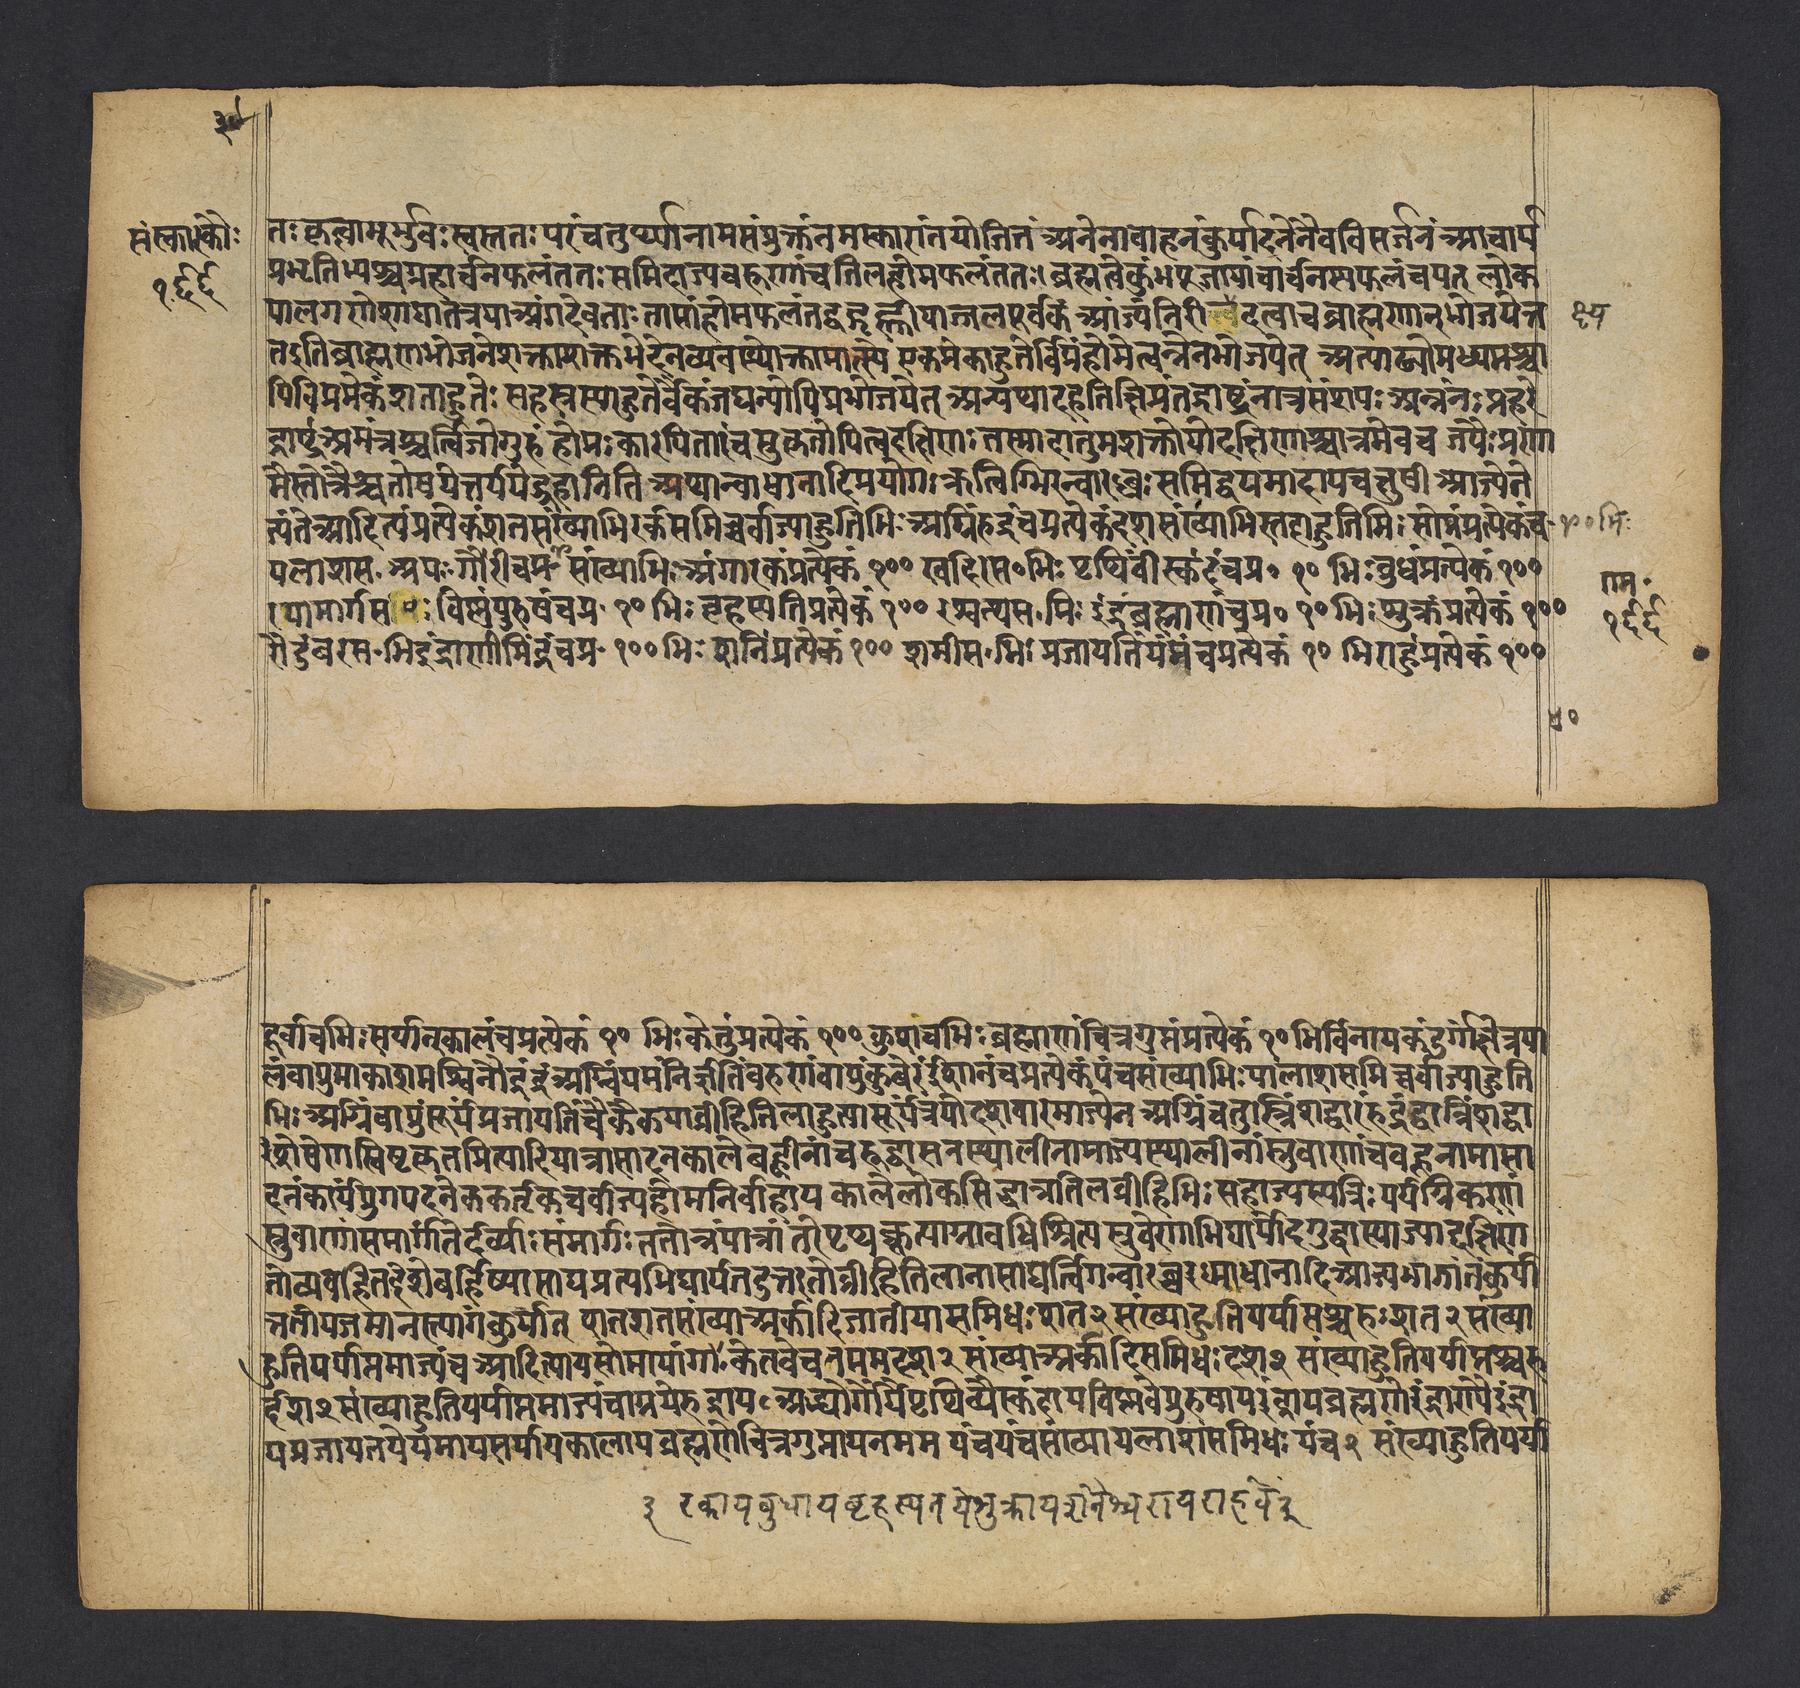 संस्कारकौ॰
१९९
तः कृत्वाभूर्भुवः स्वस्ततः परंचतुर्थ्यानामसंयुक्तंनमस्कारांतयोजितं अनेनावाहनंकुर्यादनेनैवविसर्जनं आचार्य
प्रभृतिभ्यश्चग्रहार्चनफलंततः समिदाज्यचरूणांचतिलहोमफलंततः ब्रह्मत्वेकुंभपूजायांचार्चनस्यफलंचयत् लोक
पालगणेशाद्यातत्रया अंगदेवताः तासांहोमफलंतद्वद्गृह्णीयाज्जलपूर्वकं आज्यंनिरी दत्वाच ब्राह्मणान्भोजयेत्त
तइतिब्राह्मणभोजनेशक्ताशक्तभेदेनव्यवस्थोक्तामात्स्ये एकमेकाहुतेर्विप्रंहोमेत्वन्नेनभोजयेत् अल्पाढ्योमध्यमश्चा
पिविप्रमेकंशताहुतेः सहस्रस्याहुतेर्वैकंजघन्योपिप्रभोजयेत् अन्यथादहतिक्षिप्रंतद्राष्ट्रंनात्रसंशयः अन्नंनः प्रहरे
द्राष्ट्रं अमंत्रश्चर्त्विजोगुरुं होमः कारयितारंच स्तुत्कृतोपित्वदक्षिणः तस्माद्दातुमशक्तोयोदक्षिणाश्चान्नमेवच जपैः प्रणा
मैस्तोत्रैश्चतोषयेत्तर्पयेद्ग्रहानिति अथान्वाधानादिप्रयोगः ऋत्विग्भिरन्वारब्धः समिद्द्वयमादायचक्षुषी आज्येने
त्यंते आदित्यंप्रत्येकंशतसंख्याभिरर्कसमिच्चर्वाज्याहुतिभिः अग्निंरुद्रंचप्रत्येकंदशसंख्याभिस्तदाहुतिभिः सोमंप्रत्येकंच १०० भिः
पलाशस॰ अपः गौरींचप्र॰ संख्याभिः अंगारकंप्रत्येकं १०० खदिरस॰ भिः पृथिवींस्कंदंचप्र॰ १० भिः बुधंप्रत्येकं १००
पामार्गस भिः विष्णुंपुरुषंचप्र॰ १० भिः बृहस्पतिंप्रत्येकं १०० अश्वत्थस॰ भिः इंद्रंब्रह्माणंचप्र॰ १० भिः शुक्रंप्रत्येकं १००
औदुंबरस॰ भिः इंद्राणीमिंद्रंचप्र॰ १०० भिः शनिंप्रत्येकं १०० शमीस॰ भिः प्रजापतिंयमंचप्रत्येकं १० भिः राहुंप्रत्येकं १००
राम॰
१९९
१०
दूर्वाचभिः सर्पान्कालंचप्रत्येकं १० भिः केतुंप्रत्येकं १०० कुशचभिः ब्रह्माणंचित्रगुप्तंप्रत्येकं १० भिर्विनायकंदुर्गांक्षेत्रपा
लंवायुमाकाशमश्विनौइंद्रं अग्निंयमंनिर्ऋतिंवरुणंवायुंकुबेरंईशानंचप्रत्येकंपंचसंख्याभिः पालाशसमिच्चर्वाज्याहुति
भिः अग्निंवायुंसूर्यंप्रजापतिंचैकैकयाव्रीहितिलाहुत्या सूर्यंत्रयोदशवारमाज्येन अग्निंचतुस्त्रिंशद्वारंरुद्रंद्वात्रिंशद्वा
रंशेषेणस्विष्टकृतमित्यादिपात्रासादनकाले बह्वीनांचरूद्वासनस्थालीनामाज्यस्थालीनांस्रुवाणांचबहूनामासा
दनंकार्यंयुगपदनेककर्तृकचर्वाज्यहोमनिर्वाहाय कालेलोकसिद्धान्नतिलव्रीहिभिः सहाज्यस्यत्रिः पर्यग्निकरणं
स्रुवाणांसमार्गांतेदर्व्याः संमार्गः ततोन्नंपात्रांतरेपृथक्कृत्याग्नावधिश्रित्य स्रुवेणाभिघार्योदगुद्वास्याज्याद्दक्षिण
तोव्यवहितदेशेबर्हिष्यासाद्यप्रत्यभिघार्यतदुत्तरतोव्रीहितिलानासाद्यर्त्विगन्वारब्धइध्माधानादिआज्यभागांतंकुर्या
त्ततोयजमानस्त्यागंकुर्यात् शतशतसंख्या अर्कादिजातीयासमिधः शत२ संख्याहुतिपर्याप्तश्चरुः शत२ संख्या
हुतिपर्याप्तमाज्यंच आदित्यायसोमायांगा केतवेचनममदश२ संख्या अर्कादिसमिधः दश२ संख्याहुतिपर्याप्तश्चरु
र्दश२ संख्याहुतिपर्याप्तमाज्यंचाग्नयेरुद्राय अद्भ्योगौर्यैपृथिव्यैस्कंदायविष्णवेपुरुषायइंद्रायब्रह्मणेइंद्राण्यैइंद्रा
यप्रजापतयेयमायसर्पायकालायब्रह्मणेचित्रगुप्तायनमम पंचपंचसंख्यापलाशसमिधः पंच२ संख्याहुतिपर्या
रकायबुधायबृहस्पतयेशुक्रायशनैश्चरायराहवे